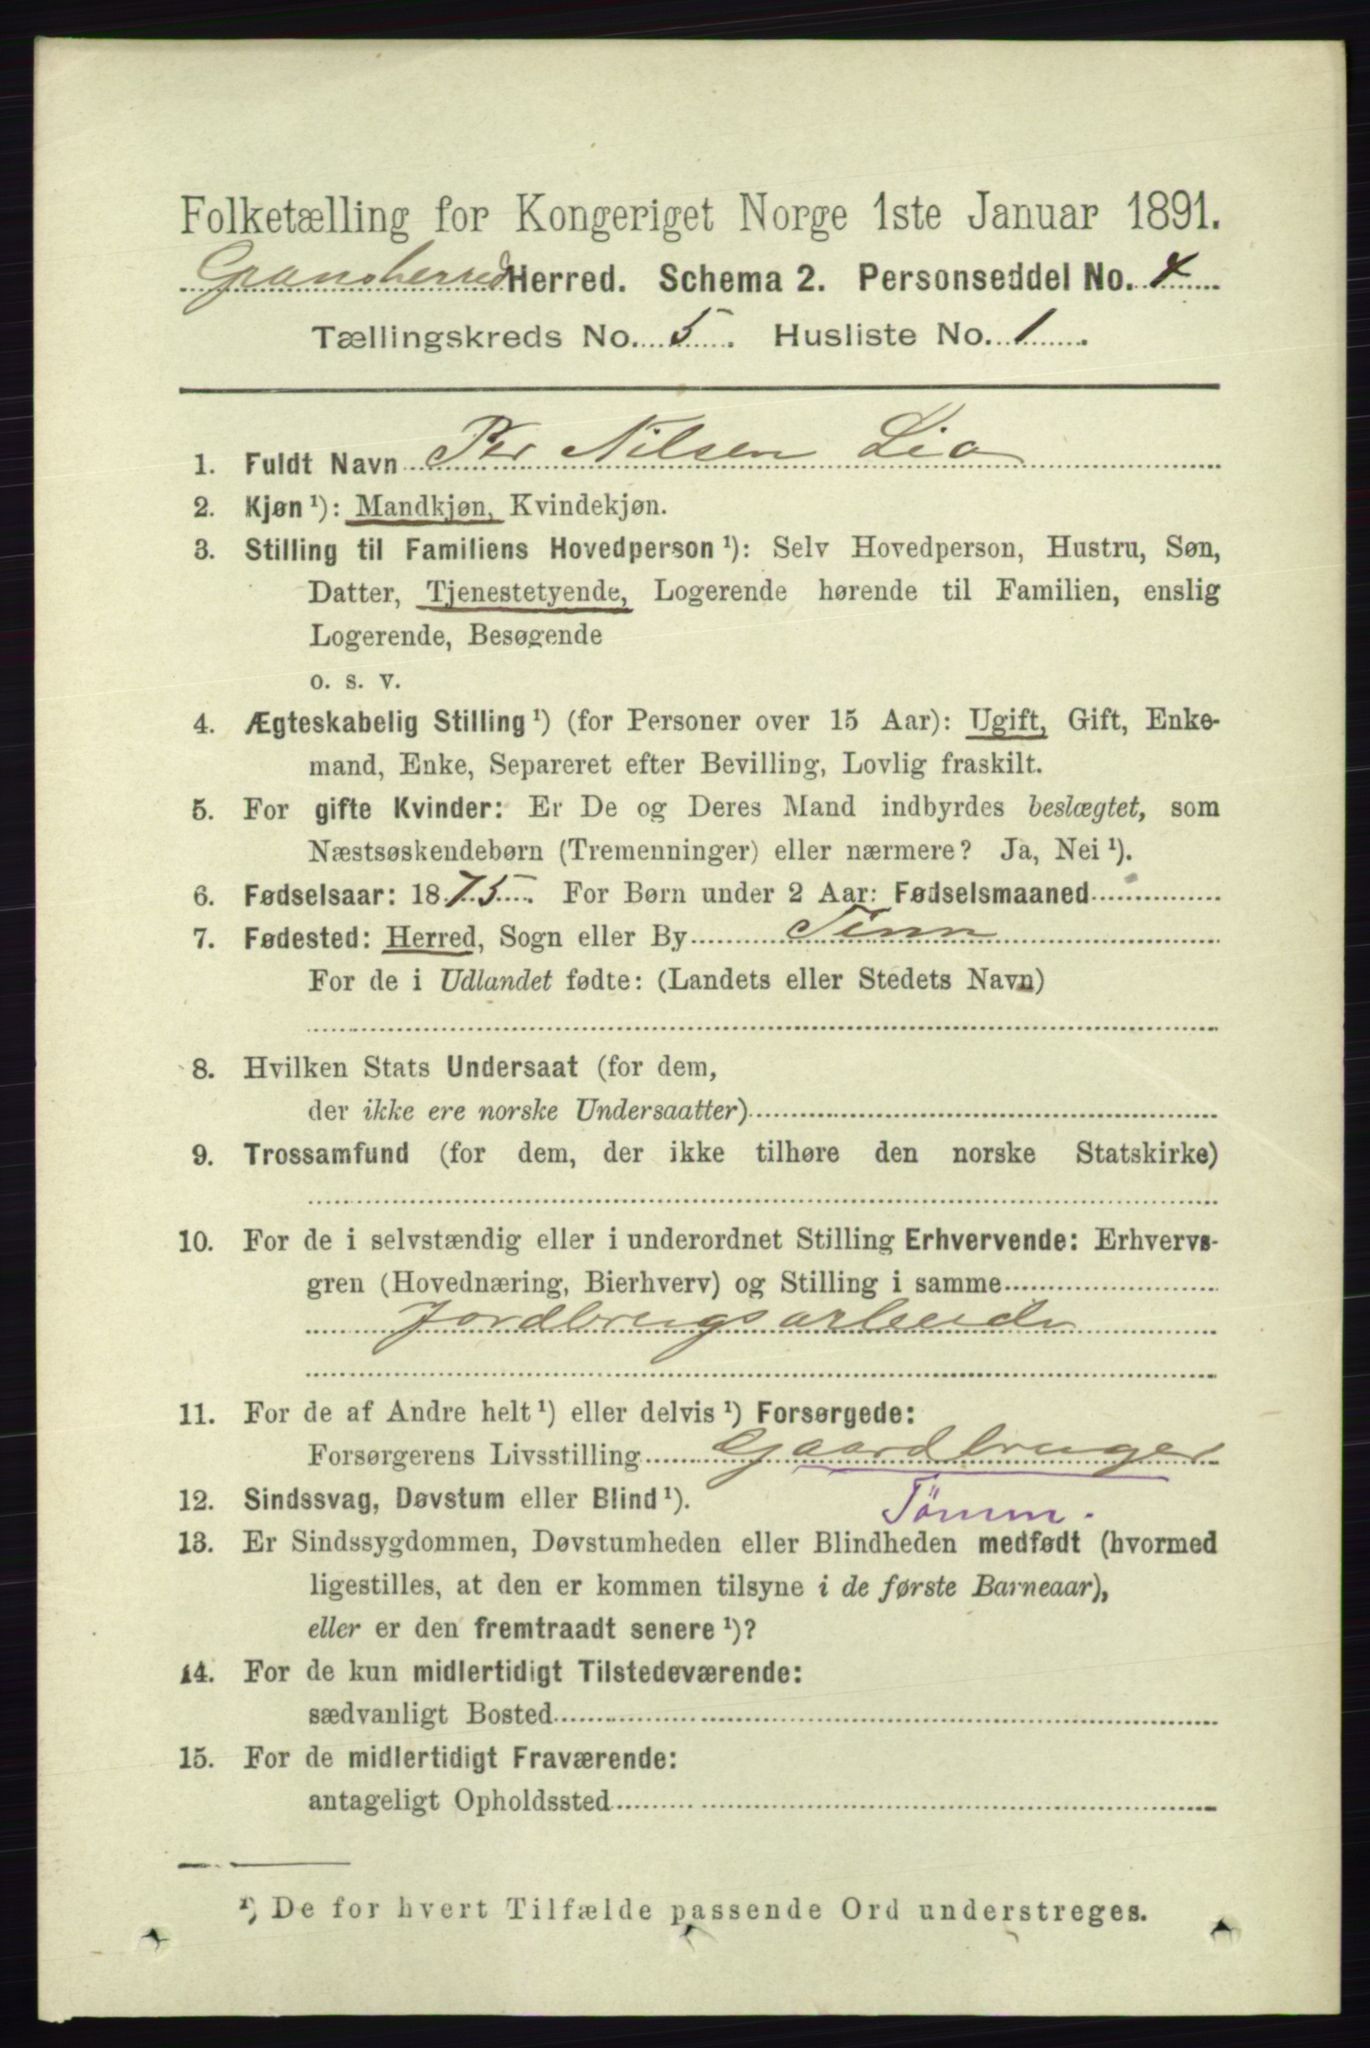 Folketælling for Kongeriget Norge 1ste Januar 1891.
Gransherred Herred. Schema 2. Personseddel No. 4
Tællingskreds No. 5. Husliste No. 1.
1. Fuldt Navn Per Nilsen Lia
2. Kjøn ¹): Mandkjøn, Kvindekjøn.
3. Stilling til Familiens Hovedperson ¹): Selv Hovedperson, Hustru, Søn,
Datter, Tjenestetyende, Logerende hørende til Familien, enslig
Logerende, Besøgende
o. s. v.
4. Ægteskabelig Stilling ¹) (for Personer over 15 Aar): Ugift, Gift, Enke-
mand, Enke, Separeret efter Bevilling, Lovlig fraskilt.
5. For gifte Kvinder: Er De og Deres Mand indbyrdes beslægtet, som
Næstsøskendebørn (Tremenninger) eller nærmere? Ja, Nei ¹).
6. Fødselsaar: 1875. For Børn under 2 Aar: Fødselsmaaned
7. Fødested: Herred, Sogn eller By Tinn
For de i Udlandet fødte: (Landets eller Stedets Navn)
8. Hvilken Stats Undersaat (for dem,
der ikke ere norske Undersaatter)
9. Trossamfund (for dem, der ikke tilhøre den norske Statskirke)
10. For de i selvstændig eller i underordnet Stilling Erhvervende: Erhvervs-
gren (Hovednæring, Bierhverv) og Stilling i samme
Jordbrugsarbeide
11. For de af Andre helt ¹) eller delvis ¹) Forsørgede:
Forsørgerens Livsstilling Gaardbruger
12. Sindssvag, Døvstum eller Blind ¹). Tömm.
13. Er Sindssygdommen, Døvstumheden eller Blindheden medfødt (hvormed
ligestilles, at den er kommen tilsyne i de første Barneaar),
eller er den fremtraadt senere ¹)?
14. For de kun midlertidigt Tilstedeværende:
sædvanligt Bosted
15. For de midlertidigt Fraværende:
antageligt Opholdssted
¹) De for hvert Tilfælde passende Ord understreges.